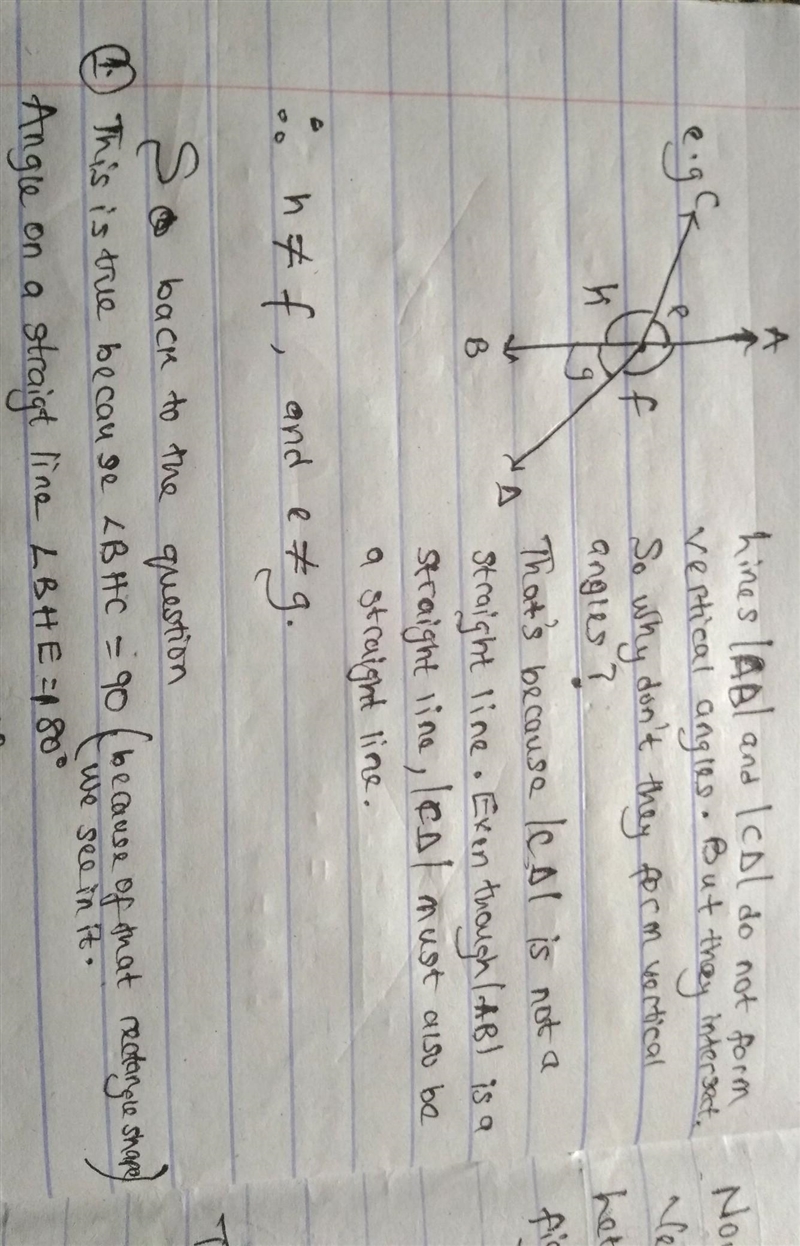 Lines |AB| and |CD| do not form
vertical angles. But they intersect.
So why don't they form vertical
angles?
That's because |CD| is not a
straight line. Even though |AB| is a
straight line, |CD| must also be
a straight line.
e.g
C
A
e
h
f
g
B
D
∴ h ≠ f, and e ≠ g.
So back to the question
1. This is true because ∠BHC = 90 (because of that rectangle shape
we see in it.)
Angle on a straigt line ∠BHE = 180°